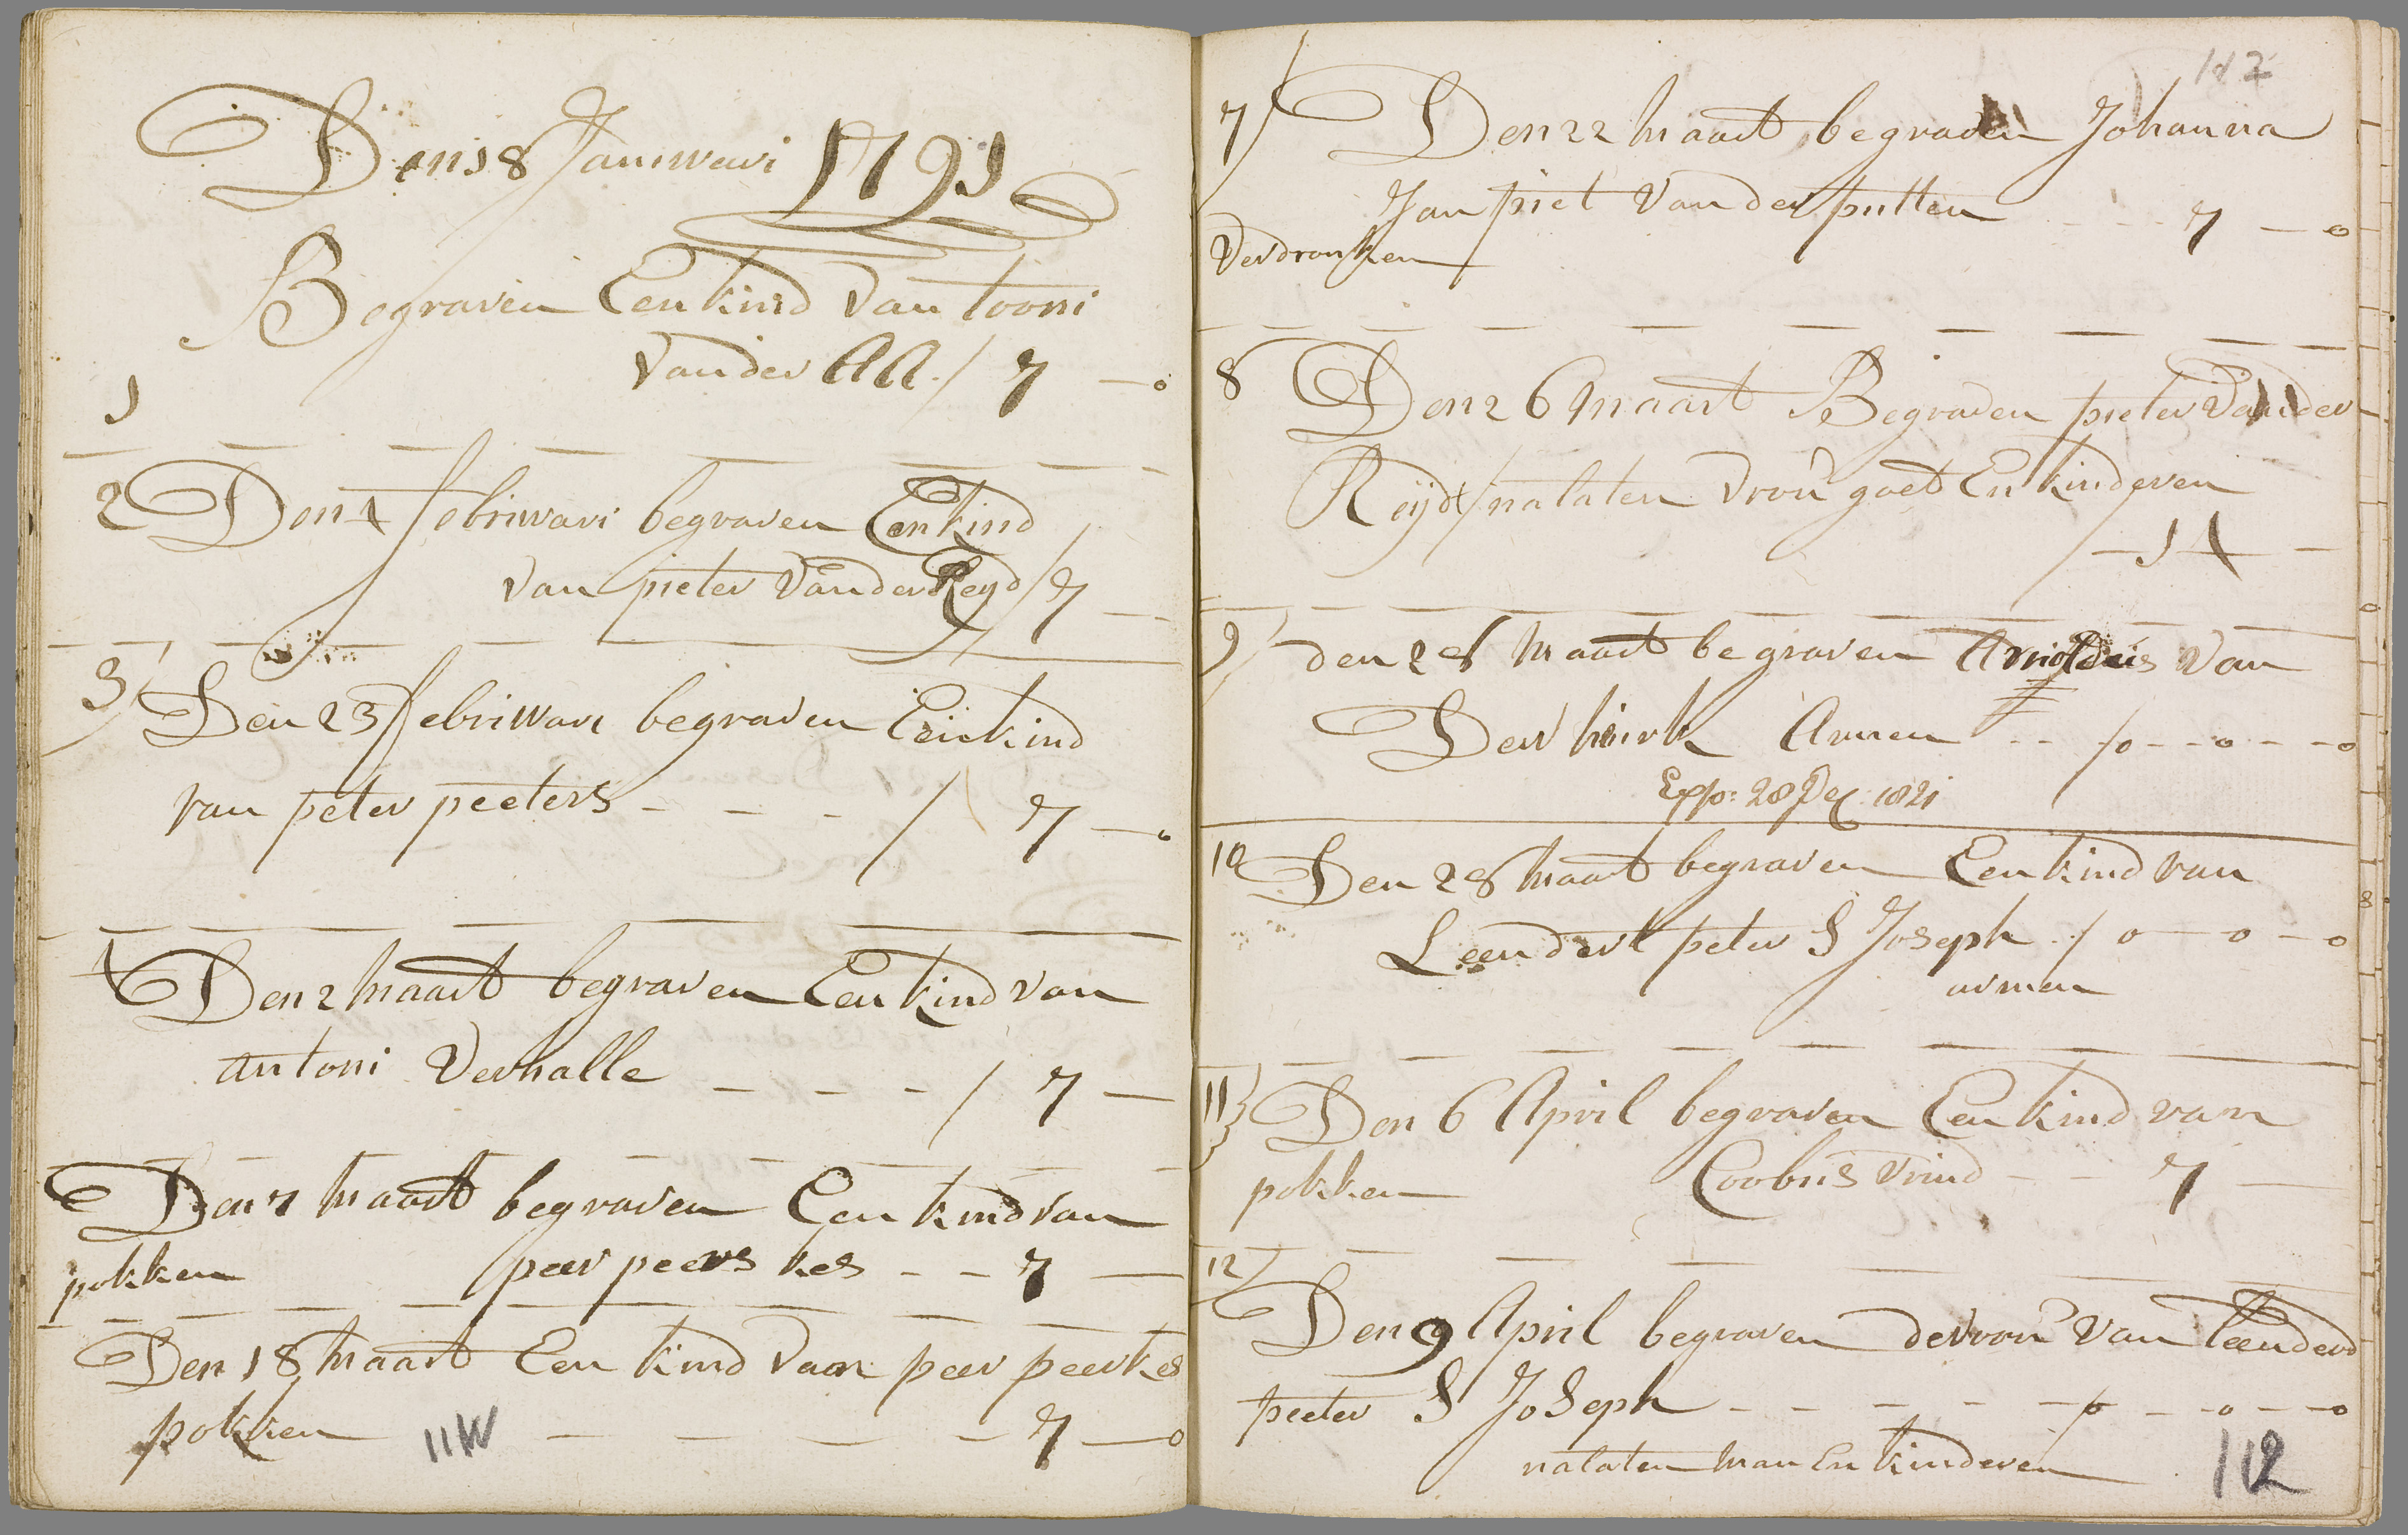 Den 18 Januwari 1791
Begraven Een kind van tooni
van der AA / 7 — o
1
2 Den 4 febriwari begraven Een kind
van pieter van der Reyd / 7 —
3/ Den 23 febriwari begraven Een kind
van peter peeters - - - / 7 — o
4 Den 2 maart begraven Een kind van
antoni Verhalle - - - / 7 —
Den 7 maart begraven Een kind van
pokken peer peerskes - - 7 —
Den 18 maart Een kind van peer peerkes
pokken - - - - 7 — o
112
7/ Den 22 maart begraven Johanna
Jan piet van der putten - - - 7 — o
Verdronken
8 Den 26 maart Begraven pieter van der
Reijdt / nalaten vrou goet En kinderen
— 14 —
9/ den 28 maart begraven Arnoldus van
Der kerk Armen - - / o - - o - - o
Exp: 28 Dec 1821
10 Den 28 maart begraven Een kind van
Leendert peter S Joseph . / o — o — o
armen
11 } Den 6 April begraven Een kind van
pokken Coobus Vrind - - 7 —
12/
Den 9 April begraven de vrou van Leenderd
peeter S Joseph - - - - o - - o - - o
nalaten man En kinderen
112